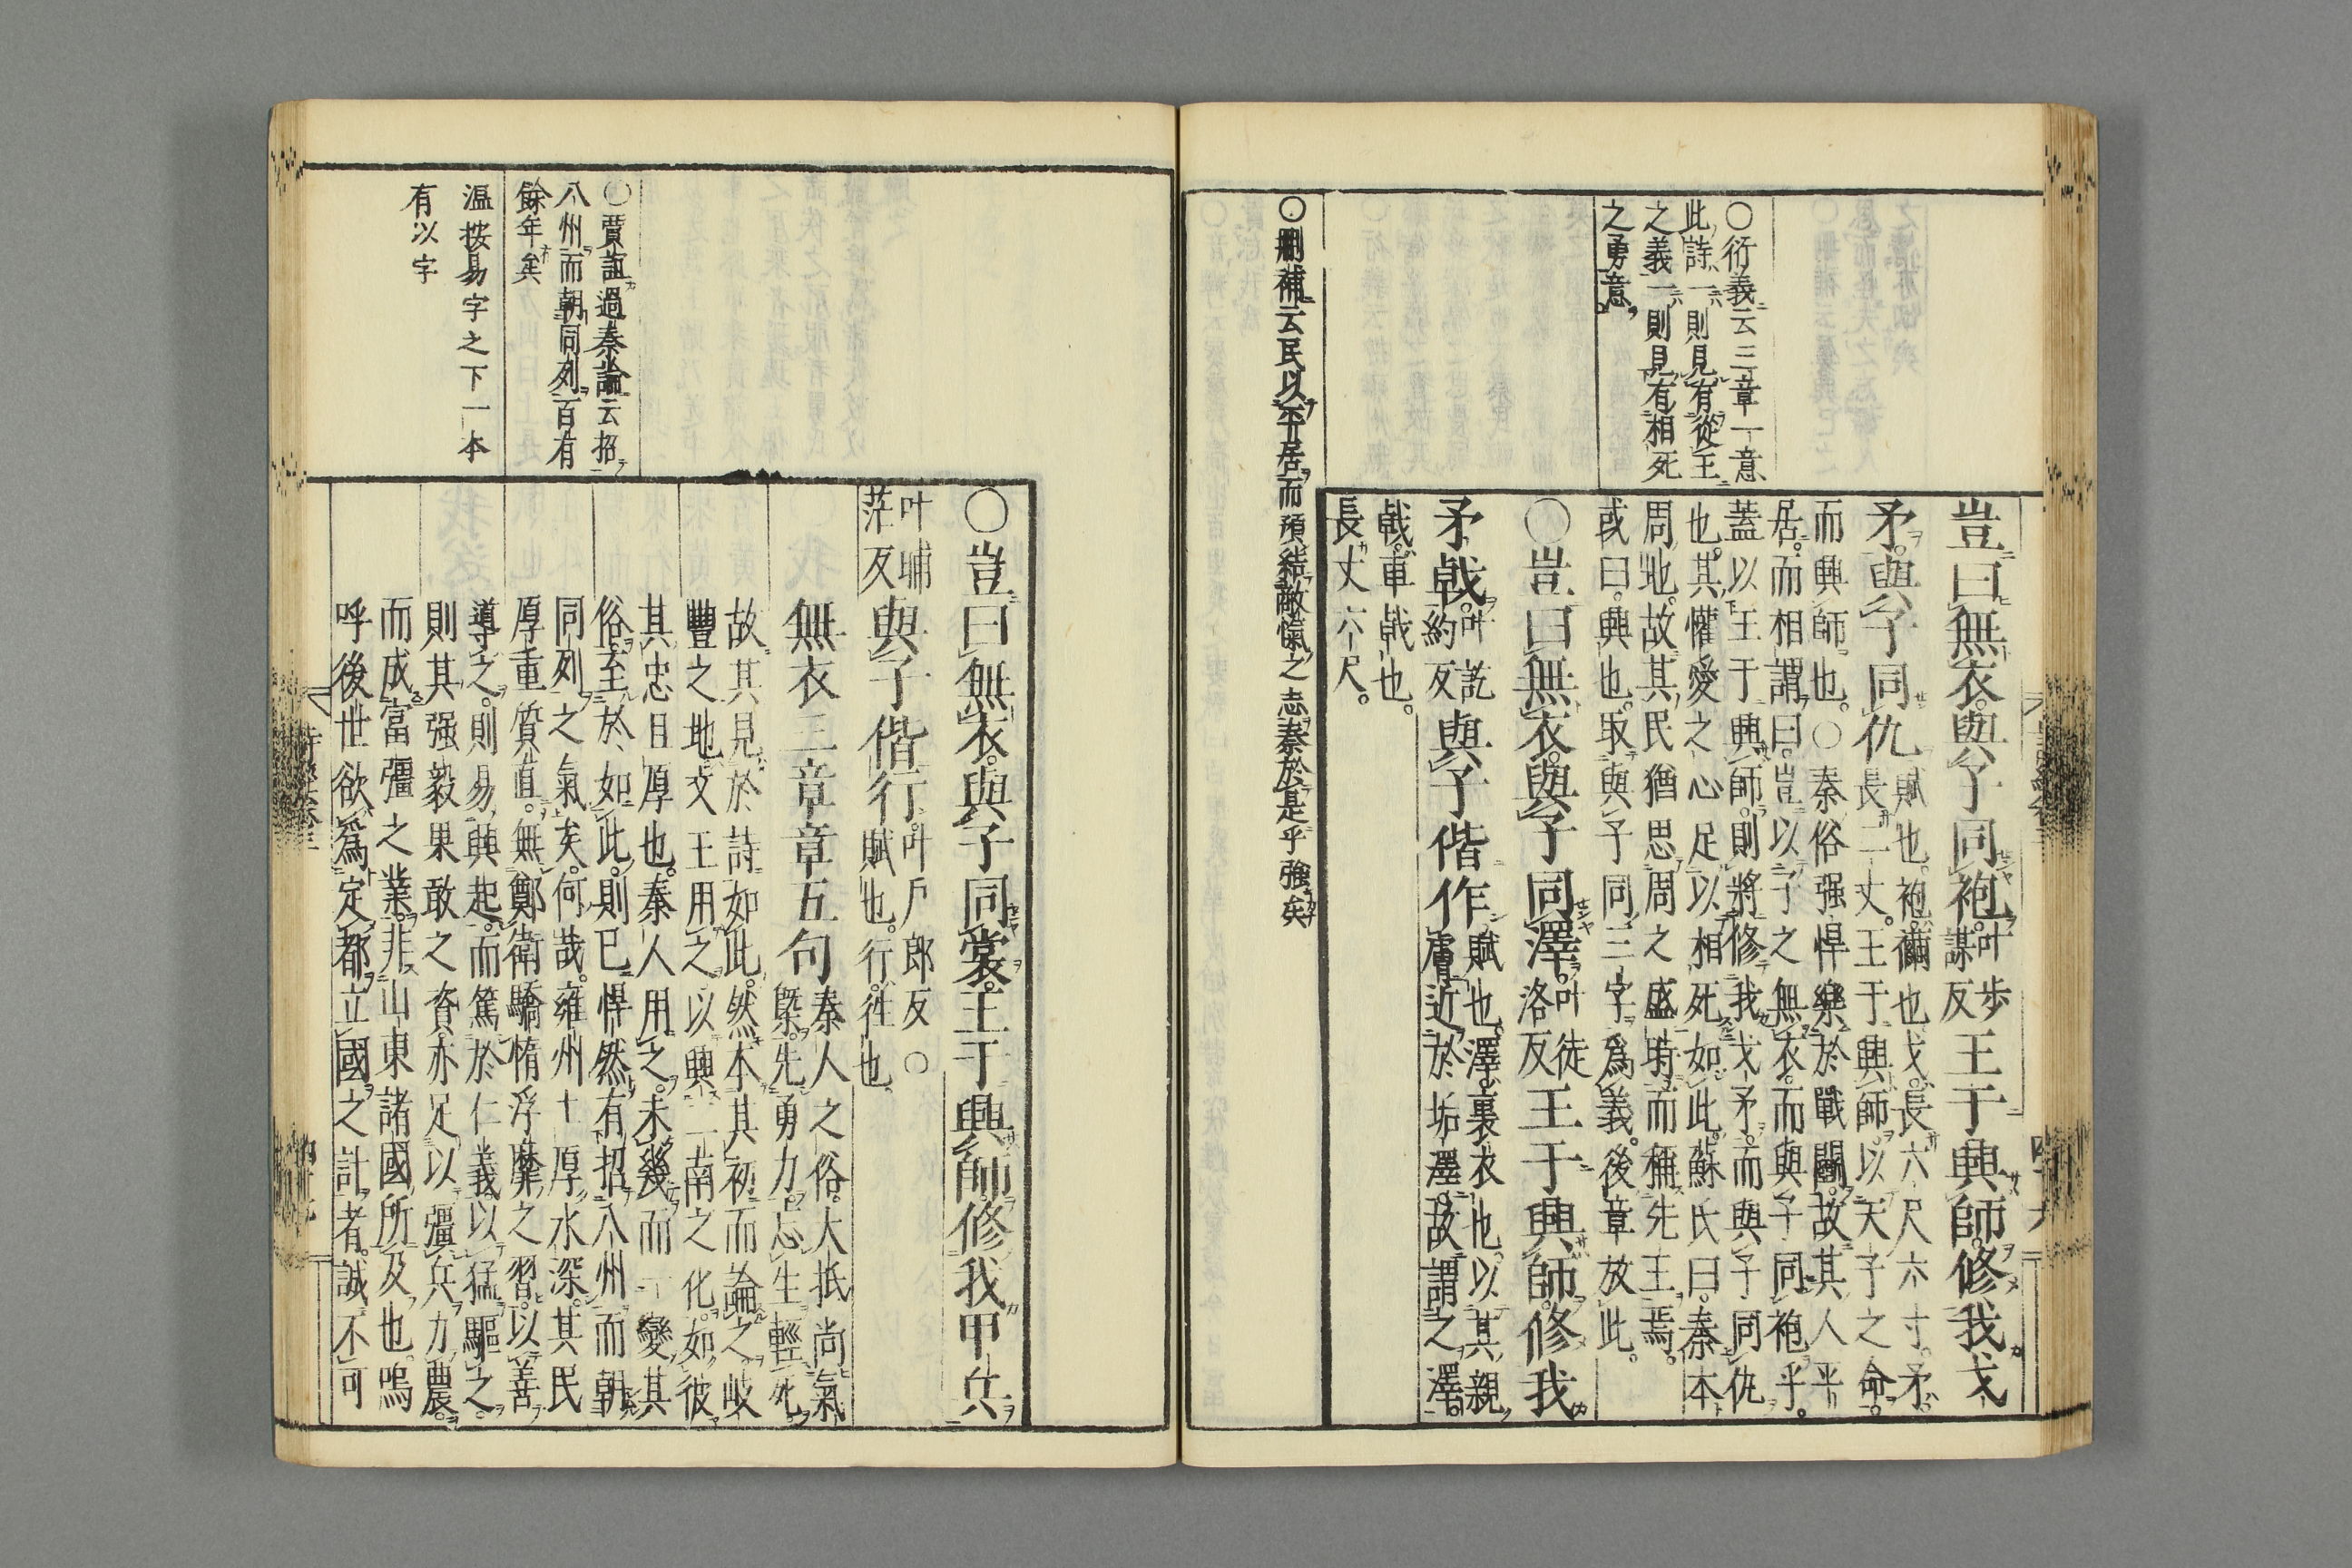 ○衍義云三章一意
此詩一則見有從王
之義一則見有相死
之勇意
○刪補云民以平居而預結敵愾之志秦於是乎強矣
豈曰無衣與子同袍叶步謀反王于興師修我戈
矛與子同仇賦也袍襺也戈長六尺六寸矛
長二丈王于興師以天子之命
而興師也○秦俗强悍樂於戰鬪故其人平
居而相謂曰豈以子之無衣而與子同袍乎
蓋以王于興師則將修我戈矛而與子同仇
也其懽愛之心足以相死如此蘇氏曰秦本
周地故其民猶思周之盛時而稱先王焉
或曰興也取與子同三字爲義後章放此
○豈曰無衣與子同澤叶徒洛反王于興師修我
矛戟叶訖約反與子偕作賦也澤裏衣也以其親
膚近於垢澤故謂之澤
戟車戟也
長丈六尺
○賈誼過秦論云招
八州而朝同列百有
餘年矣
溫按易字之下一本
有以字
○豈曰無衣與子同裳王于興師修我甲兵
叶晡茫反與子偕行叶戶郎反○賦也行往也
無衣三章章五句秦人之俗大抵尚氣
槩先勇力忘生輕死
故其見於詩如此然本其初而論之岐
豐之地文王用之以興二南之化如彼
其忠且厚也秦人用之未幾而一變其
俗至於如此則已悍然有招八州而朝
同列之氣矣何哉雍州土厚水深其民
厚重質直無鄭衛驕惰浮靡之習以善
導之則易興起而篤於仁義以猛驅之
則其强毅果敢之資亦足以彊兵力農
而成富彊之業非山東諸國所及也嗚
呼後世欲爲定都立國之計者誠不可